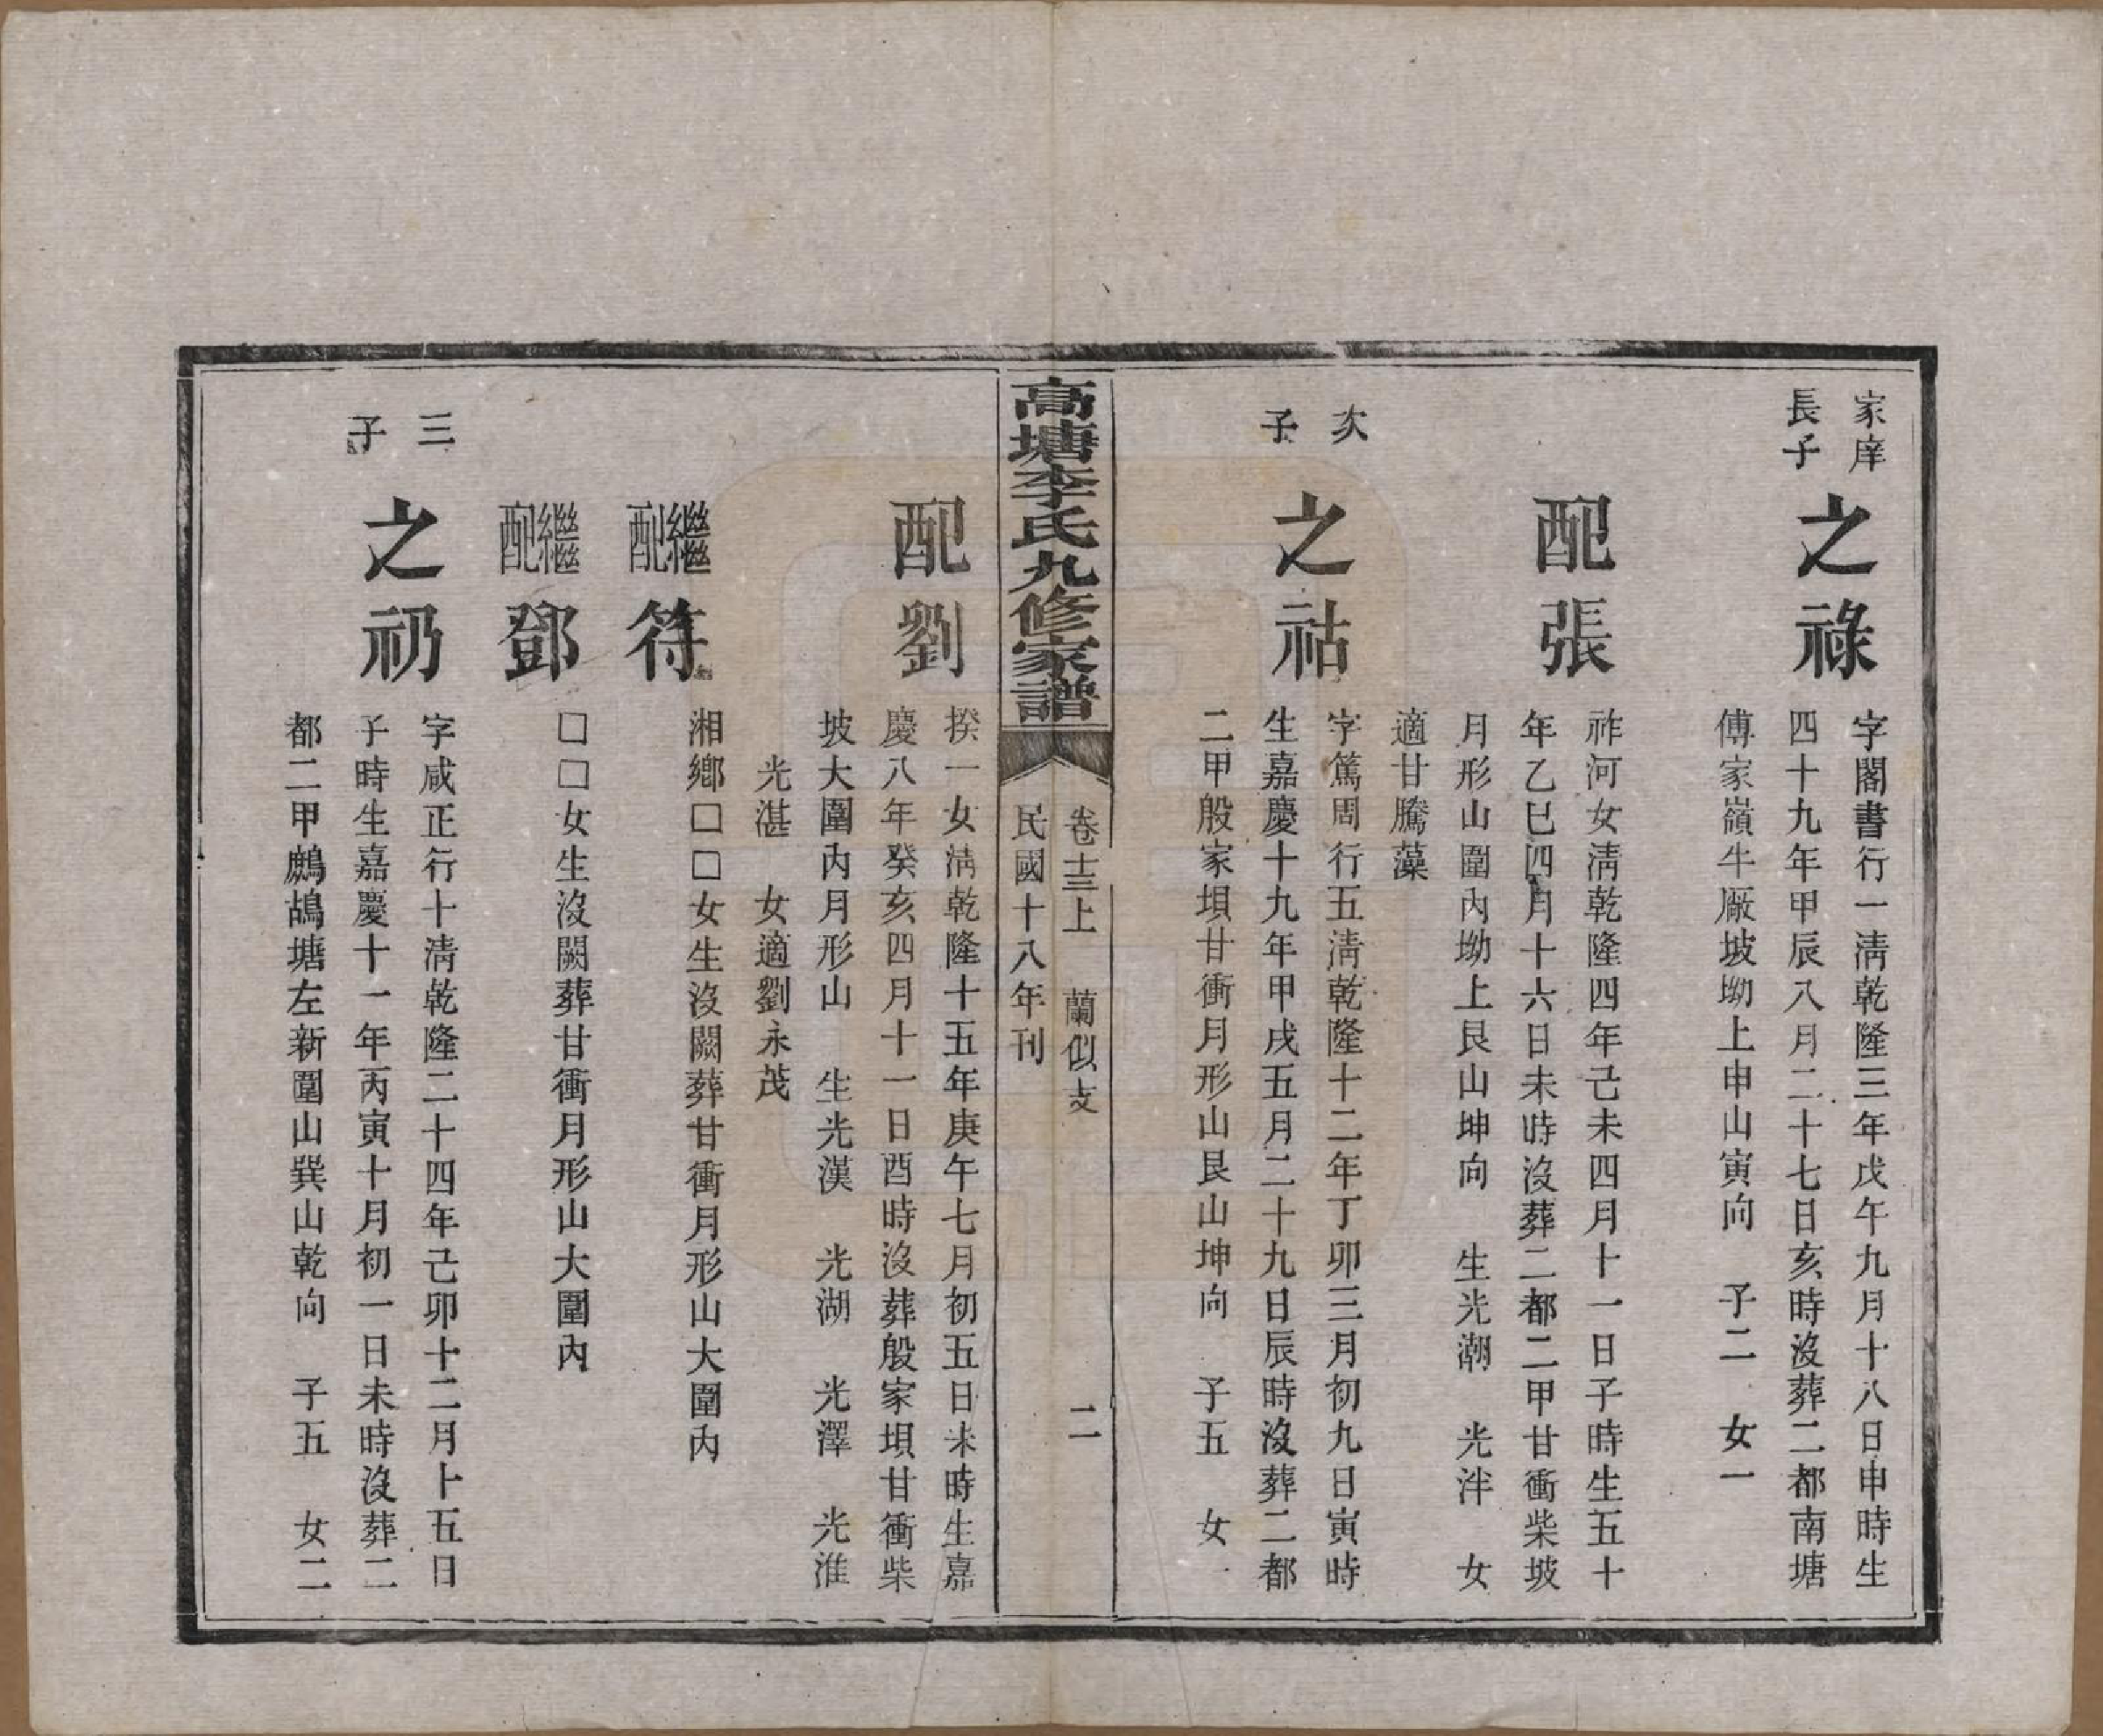 家庠
長子
之祿
字閣書行一淸乾隆三年戊午九月十八日申時生
四十九年甲辰八月二十七日亥時沒葬二都南塘
傅家嶺牛厰坡坳上申山寅向　子二　女一
配張
祚河女淸乾隆四年己未四月十一日子時生五十
年乙巳四月十六日未時沒葬二都二甲甘衝柴坡
月形山圍內坳上艮山坤向　生光潮　光泮　女
適甘騰藻
次
子
之祜
字篤周行五淸乾隆十二年丁卯三月初九日寅時
生嘉慶十九年甲戌五月二十九日辰時沒葬二都
二甲殷家垻甘衝月形山艮山坤向　子五　女
高塘李氏九修家譜
卷十三上　蘭似支　二
民國十八年刊
配劉
揆一女淸乾隆十五年庚午七月初五日未時生嘉
慶八年癸亥四月十一日酉時沒葬殷家垻甘衝柴
坡大圍內月形山　生光漢　光湖　光澤　光淮
光湛　女適劉永茂
繼配符
湘鄉□□女生沒闕葬甘衝月形山大圍內
繼配鄧
□□女生沒闕葬甘衝月形山大圍內
三
子
之礽
字咸正行十淸乾隆二十四年己卯十二月十五日
子時生嘉慶十一年丙寅十月初一日未時沒葬二
都二甲鷓鴣塘左新圍山巽山乾向　子五　女二